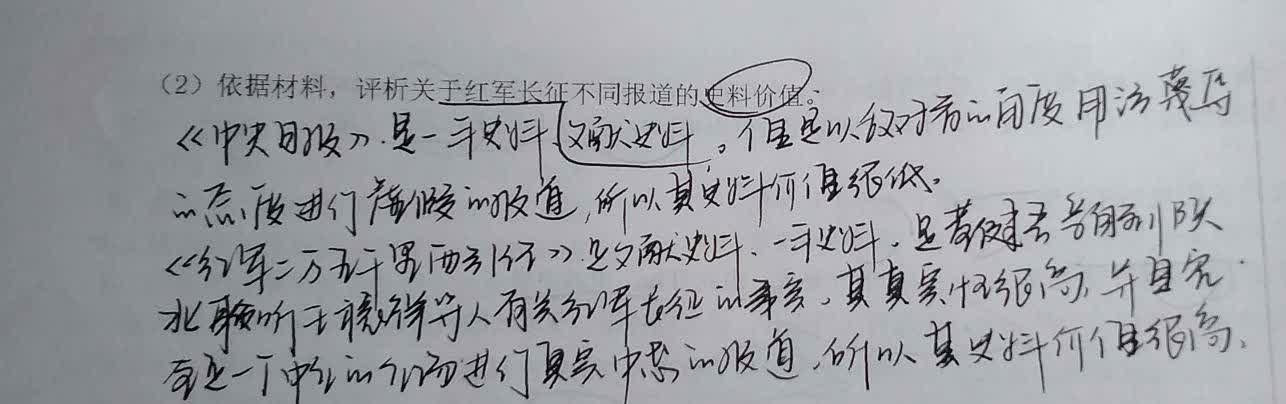 (2)依据材料，评析关于红军长征不同报道的史料价值。
《中央日报》是一手史料、文献史料。但是以敌对方的角度用污蔑辱
的态度进行虚假的报道，所以其史料价值很低。
《红军二万五千里西引行》是文献史料、一手史料，是
听王稼祥等人有关红军长征的事实，其真实性很高，并且完
全是一个中立的立场进行真实中恳的报道，所以其史料价值很高。